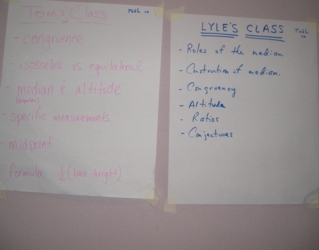 Terry's Class
- congruence
- isosceles vs equilateral
- median & altitude
- specific measurements
- midpoint
- formula ½(base·height)
LYLE'S CLASS
- Roles of the median
- Construction of median.
- Congruency
- Altitude
- Ratios
- Conjectures